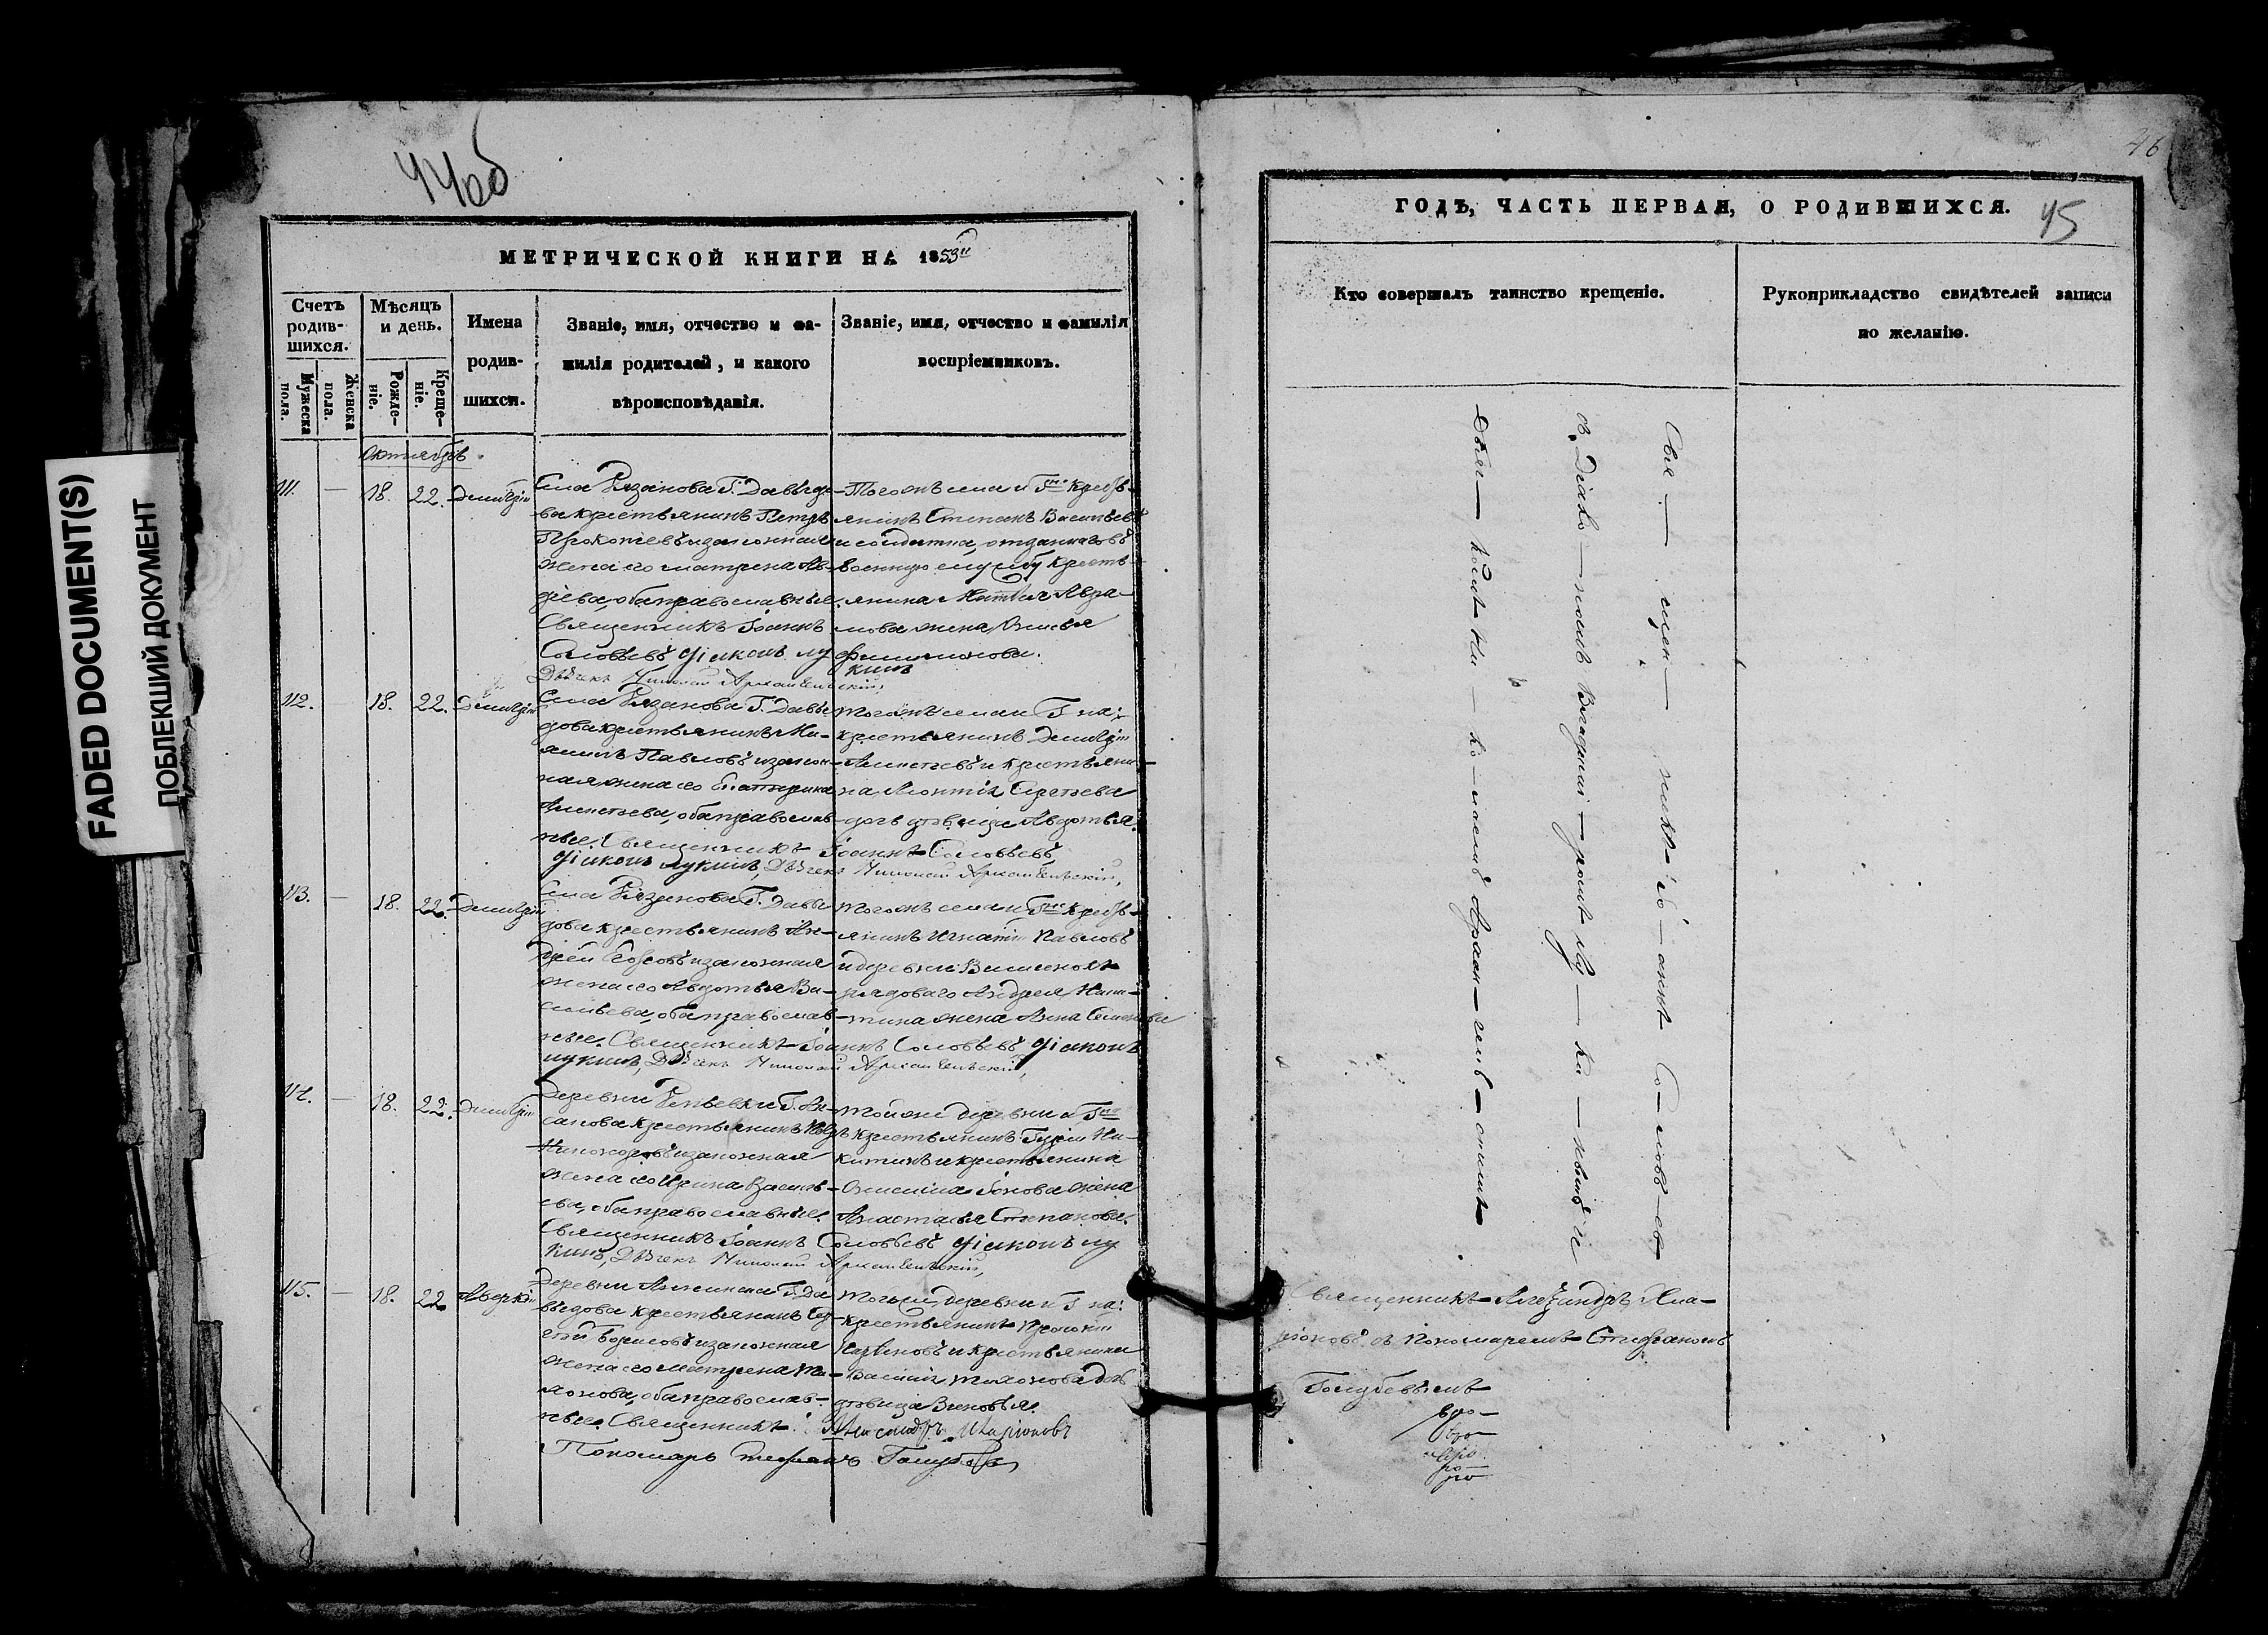 44об
МЕТРИЧЕСКОЙ КНИГИ НА 1853й
Счетъ родив-шихся.
Мужеска пола.
Женска пола.
Мѣсяцъ и день.
Рожде-ніе.
Креще-ніе.
Имена родив-шихся.
Званіе, имя, отчество и фа-
милія родителей, и какого
вѣроисповѣданія.
Званіе, имя, отчество и фамилія
воспріемниковъ.
Октябрь.
111. — 18. 22. Димитрій
Села Рязанова Г. Давыдо-
ва крестьянинъ Петръ
Прокопьевъ и законная
жена его Матрена Ав-
дѣева, оба православные.
Священникъ Іоаннъ
Соловьевъ Діаконъ Лу
кинъ
Дьячекъ Николай Архангельскій,
Того же села и Гна крестья-
янинъ Степанъ Васильевъ
и солдатка, отданнаго въ
военную службу крестья-
янина
мова жена
Филимонова.
112. 18. 22. Димитрій
Села Рязанова Г. Давы
дова крестьянинъ Ми-
Павловъ и закон-
ная жена его Екатерина
оба православ-
ные. Священникъ Іоаннъ Соловьевъ,
Діаконъ Лукинъ, Дьячекъ Николай Архангельскій,
Того же села и Г на:
крестьянинъ Димитрій
и крестьяни-
на Леонтія Сергѣева
дочь дѣвица Авдотья.
113. — 18. 22. Димитрій
Села Рязанова Г. Давы
дова крестьянинъ Ан-
дрей Егоровъ и законная
жена его Авдотья Ва-
сильева, оба православ-
ные. Священникъ Іоаннъ Соловьевъ Діаконъ
Лукинъ, Дьячекъ Николай Архангельскій,
Того же села и Гна крестья-
янинъ Игнатій Павловъ
и деревни
рядоваго Андрея Ники-
тина жена Анна Семенова
114. — 18. 22. Димитрій
Деревни Репьевки Г. Ан-
ненкова крестьянинъ
Никоноровъ и законная
жена его Ирина Василь-
ева, оба православные.
Священникъ Іоаннъ Соловьевъ Діаконъ Лу
кинъ, Дьячекъ Николай Архангельскій,
Той же деревни и Гна
крестьянинъ Гурій Ни-
китинъ и крестьянина
жена
Анастасья Степанова.
115. — 18. 22. Аверкій
Деревни Г. Да
выдова крестьянинъ Сер-
гѣй Борисовъ и законная
жена его Матрена Ти-
хонова, оба православ-
ные. Священникъ Александръ Иларіоновъ
Пономарь Стефанъ Голубевъ
Той же деревни и Г на:
крестьянинъ Прокопій
и крестьянина
Василія Тихонова дочь
дѣвица Зиновья.
46
ГОДЪ, ЧАСТЬ ПЕРВАЯ, О РОДИВШИХСЯ.
45
Кто совершалъ таинство крещенія.
Рукоприкладство свидѣтелей записи
по желанію.
Свя — щен — никъ Іо — аннъ Со — ловь — евъ
съ Діако — номъ Владими — ромъ Лу — ки — нымъ и
Дьяч — комъ Ни — ко — лаемъ Архан — гель — скимъ
Священникъ Александръ Ила-
ріоновъ съ Пономаремъ Стефаномъ
Голубевымъ